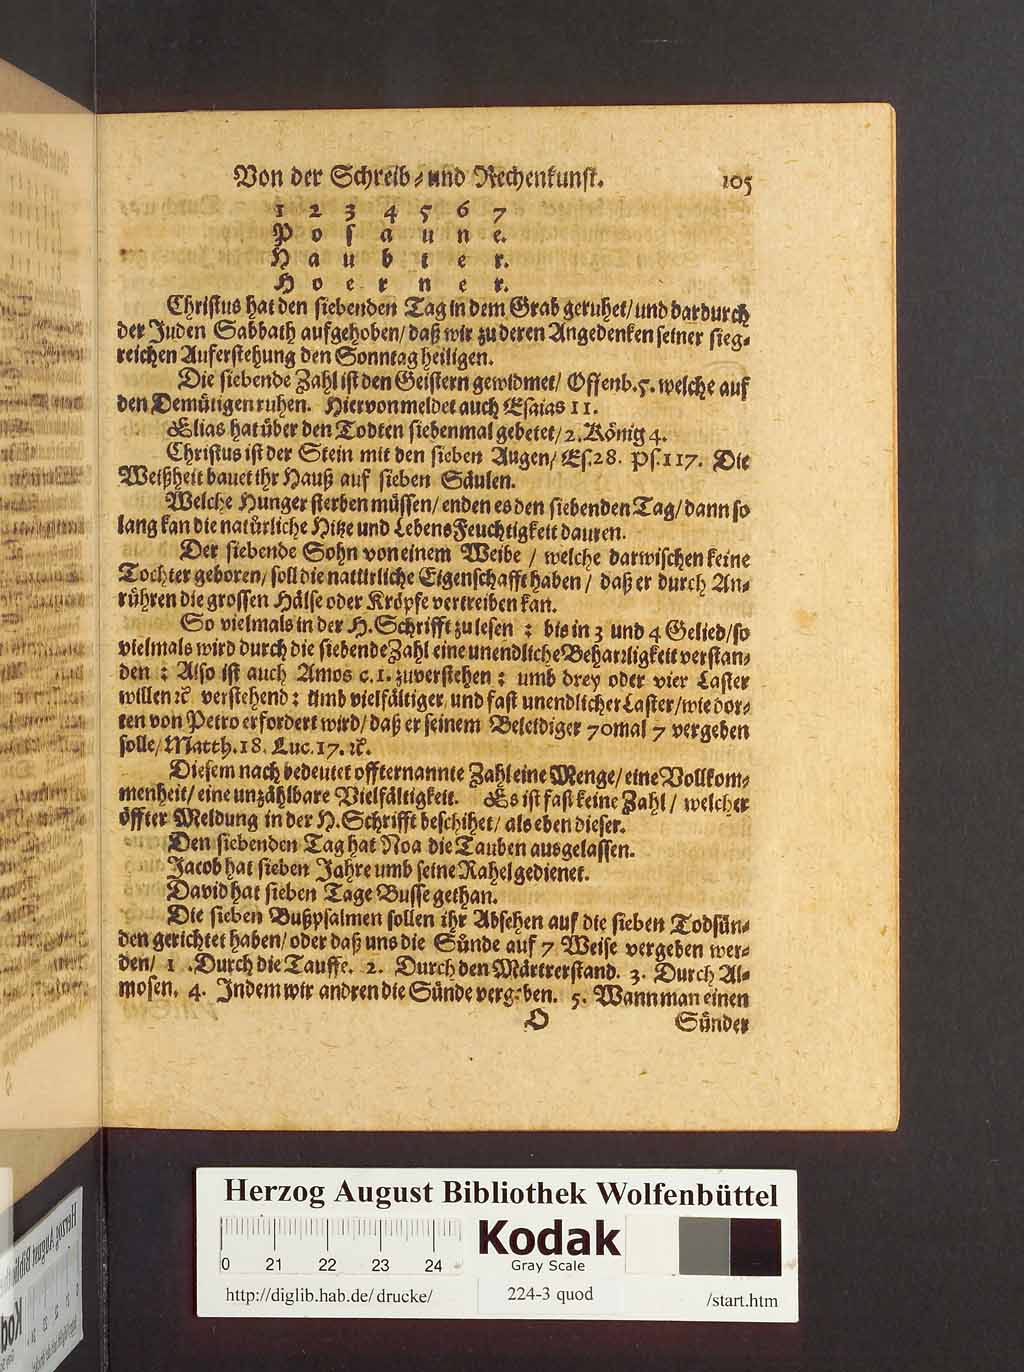 Von der Schreib- und Rechenkunst. 105
1 2 3 4 5 6 7
P o s a u n e.
H a u b t e r.
H o e r n e r.
Christus hat den siebenden Tag in dem Grab geruhet/ und dardurch
der Juden Sabbath aufgehoben/ daß wir zu deren Angedenken seiner sieg-
reichen Auferstehung den Sonntag heiligen.
Die siebende Zahl ist den Geistern gewidmet/ Offenb. 5. welche auf
den Demütigen ruhen. Hiervon meldet auch Esaias 11.
Elias hat über den Todten siebenmal gebetet/ 2. König 4.
Christus ist der Stein mit den sieben Augen/ Es. 28. Ps. 117. Die
Weißheit bauet ihr Hauß auf sieben Säulen.
Welche Hunger sterben müssen/ enden es den siebenden Tag/ dann so
lang kan die natürliche Hitze und LebensFeuchtigkeit dauren.
Der siebende Sohn von einem Weibe / welche darwischen keine
Tochter geboren/ soll die natürliche Eigenschafft haben / daß er durch An-
rühren die grossen Hälse oder Kröpfe vertreiben kan.
So vielmals in der H. Schrifft zu lesen : bis in 3 und 4 Gelied/ so
vielmals wird durch die siebende Zahl eine unendliche Beharrligkeit verstan-
den : Also ist auch Amos c. 1. zuverstehen : umb drey oder vier Laster
willen ꝛc verstehend : umb vielfältiger und fast unendlicher Laster/ wie dor-
ten von Petro erfordert wird/ daß er seinem Beleidiger 70mal 7 vergeben
solle/ Matth. 18. Luc. 17. ꝛc.
Diesem nach bedeutet offternannte Zahl eine Menge/ eine Vollkom-
menheit/ eine unzählbare Vielfältigkeit. Es ist fast keine Zahl / welcher
öffter Meldung in der H. Schrifft beschihet/ als eben dieser.
Den siebenden Tag hat Noa die Tauben ausgelassen.
Jacob hat sieben Jahre umb seine Rahel gedienet.
David hat sieben Tage Busse gethan.
Die sieben Bußpsalmen sollen ihr Absehen auf die sieben Todsün-
den gerichtet haben/ oder daß uns die Sünde auf 7 Weise vergeben wer-
den/ 1. Durch die Tauffe. 2. Durch den Märtrerstand. 3. Durch Al-
mosen. 4. Indem wir andren die Sünde vergeben. 5. Wann man einen
O Sünder
Herzog August Bibliothek Wolfenbüttel
0 21 22 23 24
Kodak
Gray Scale
http://diglib.hab.de/drucke/ 224-3 quod /start.htm